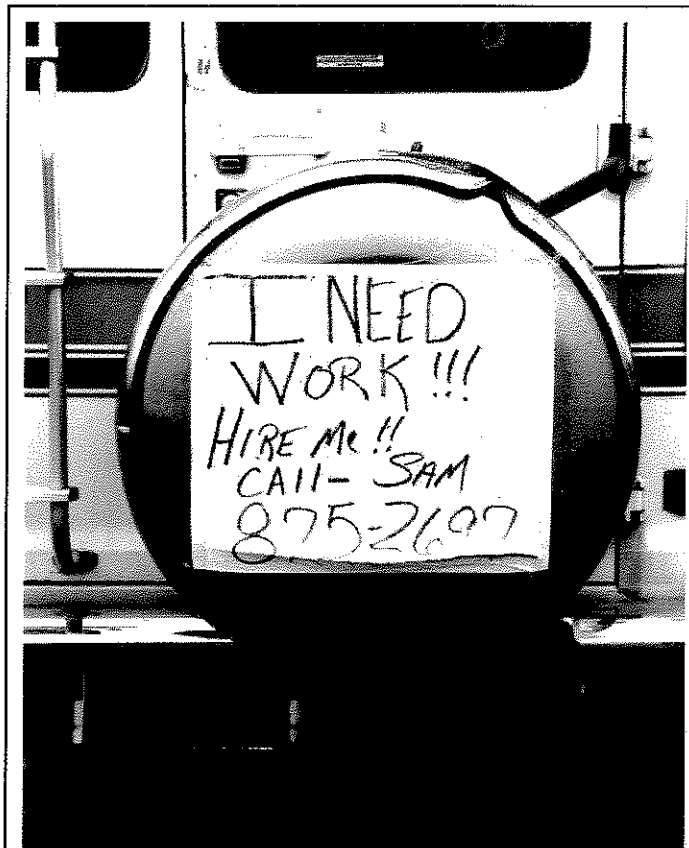 I NEED
WORK!!!
HIRE Me!!
CAll- SAM
875-2697